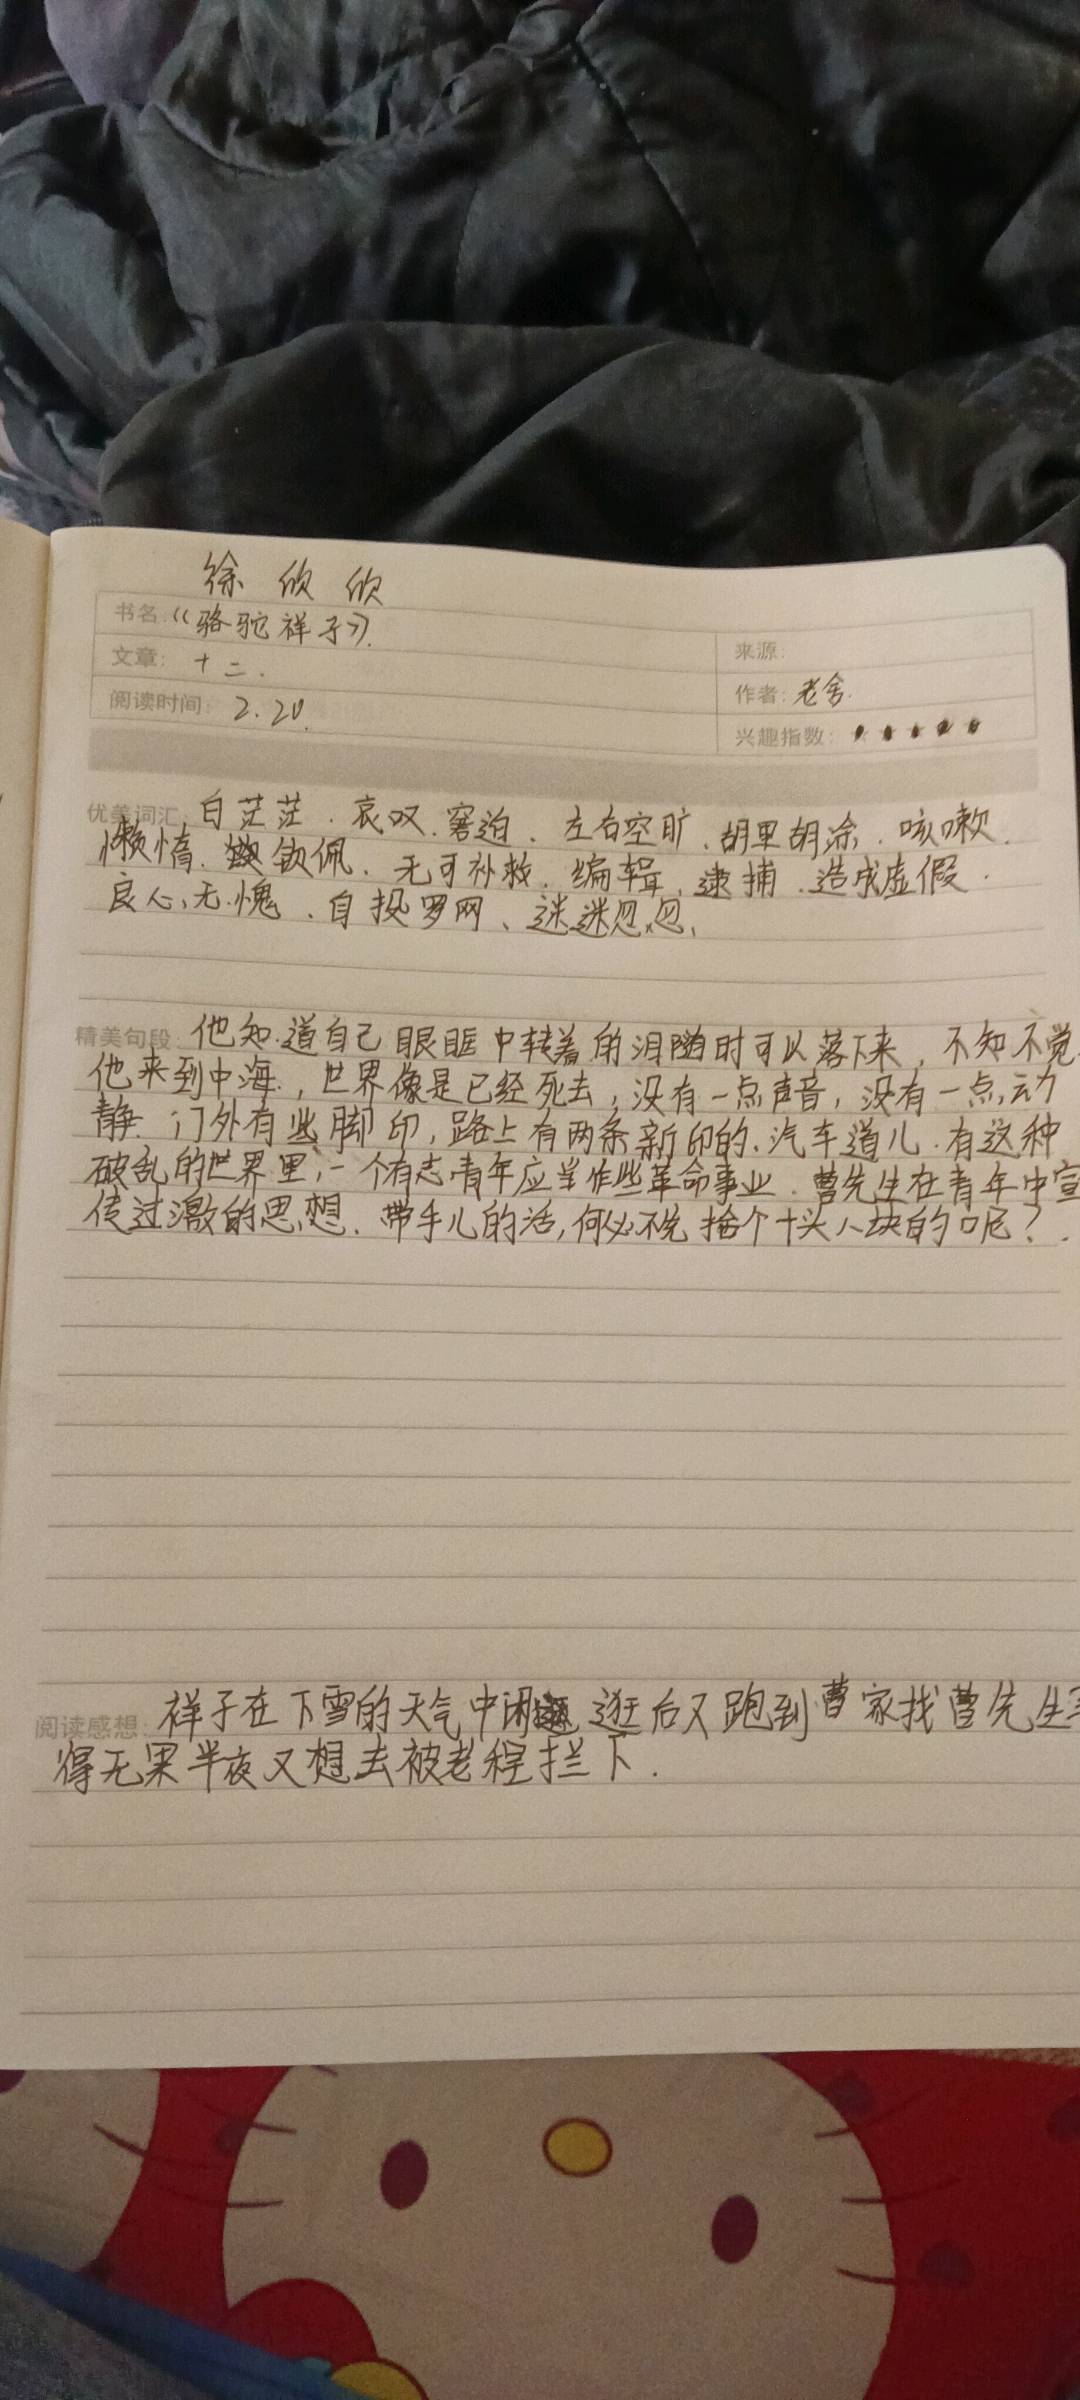 徐欣欣
书名:《骆驼祥子》.
来源:
文章: 十二.
作者: 老舍.
阅读时间: 2.20.
兴趣指数: ★★★★★
优美词汇 白茫茫.哀叹.窘迫.左右空旷.胡里胡涂.咳嗽.
懒惰.钦佩.无可补救.编辑.逮捕.造成虚假.
良心无愧.自投罗网、迷迷忽忽、
精美句段: 他知道自己眼眶中转着的泪随时可以落下来,不知不觉
他来到中海,世界像是已经死去,没有一点声音,没有一点动
静.门外有些脚印,路上有两条新印的汽车道儿.有这种
破乱的世界里,一个有志青年应当作些革命事业.曹先生在青年中宣
传过激的思想.带手儿的活,何必不先捡个十头八块的呢?.
阅读感想: 祥子在下雪的天气中闲逛后又跑到曹家找曹先生
得无果半夜又想去被老程拦下.